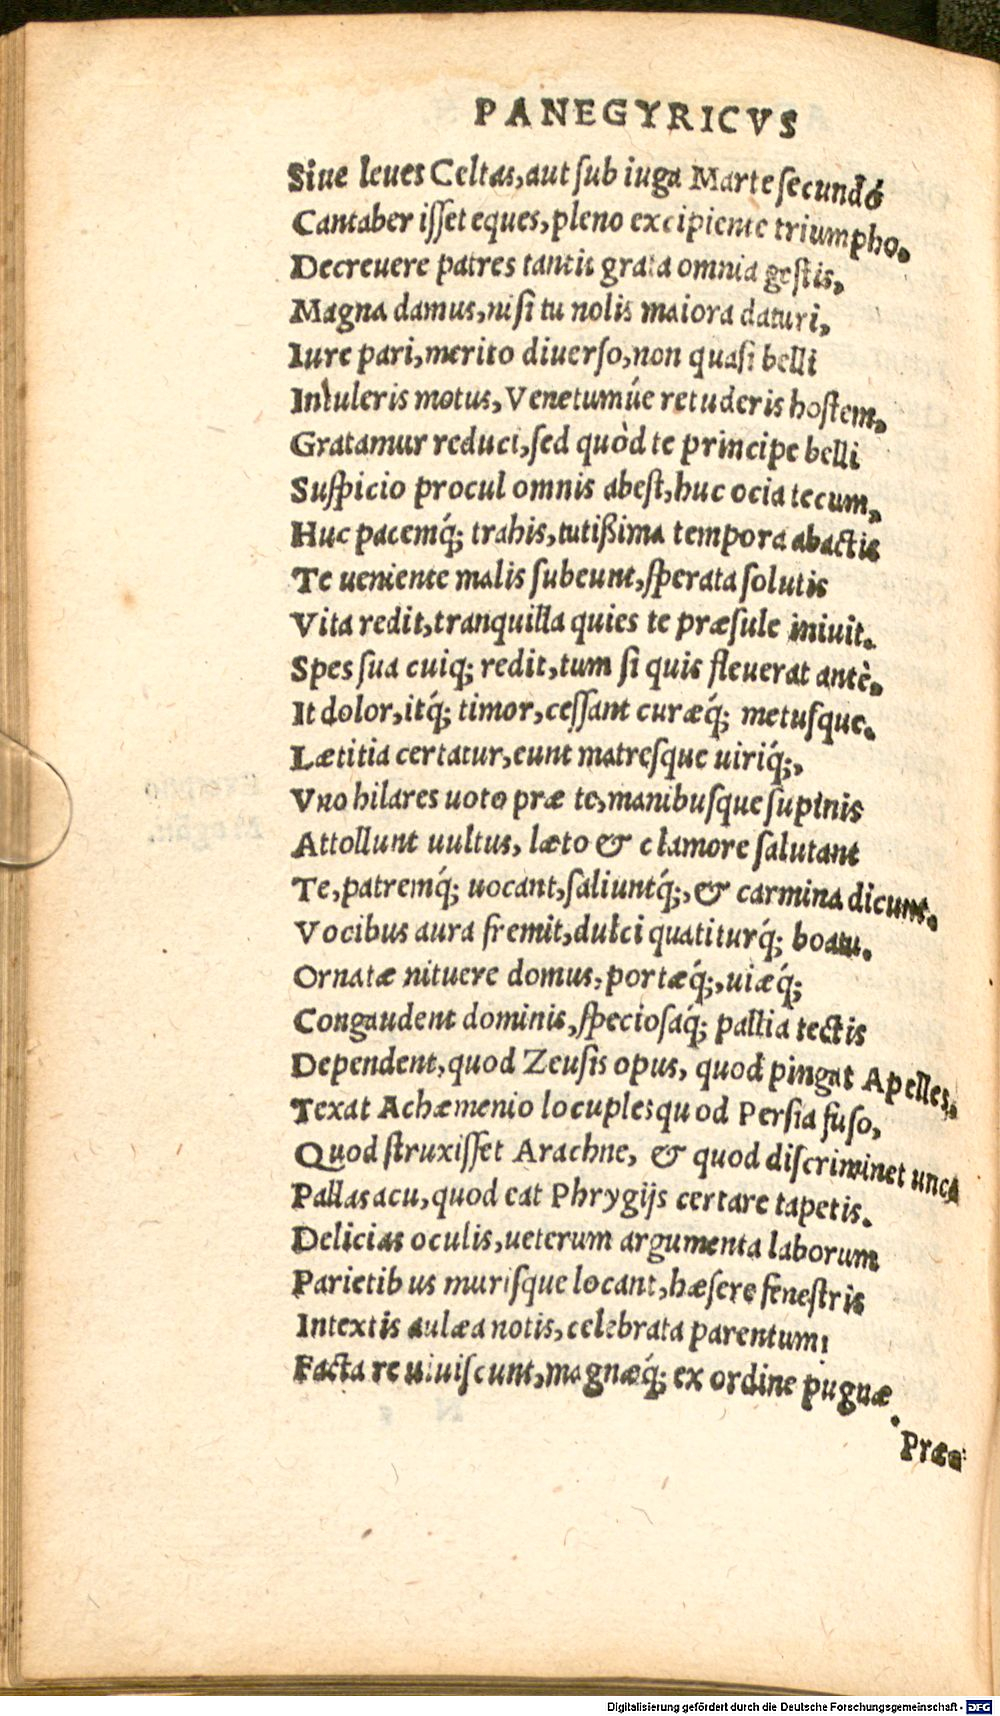 PANEGYRICVS
Siue leues Celtas, aut ſub iuga Marte ſecundó
Cantaber iſſet eques, pleno excipiente triumpho.
Decreuere patres tantis grata omnia geſtis,
Magna damus, niſi tu nolis maiora daturi,
Iure pari, merito diuerſo, non quaſi belli
Intuleris motus, Venetumúe retuderis hoſtem,
Gratamur reduci, ſed quòd te principe belli
Suſpicio procul omnis abeſt, huc ocia tecum,
Huc pacemq́; trahis, tutißima tempora abactis
Te ueniente malis ſubeunt, ſperata ſolutis
Vita redit, tranquilla quies te præſule iniuit.
Spes ſua cuiq; redit, tum ſi quis fleuerat antè,
It dolor, itq́; timor, ceſſant curæq́; metuſque.
Lætitia certatur, eunt matreſque uiriq́;,
Vno hilares uoto præ te, manibuſque ſupinis
Attollunt uultus, læto & clamore ſalutant
Te, patremq́; uocant, ſaliuntq́;, & carmina dicunt.
Vocibus aura fremit, dulci quatiturq́; boatu.
Ornatæ nituere domus, portæq́;, uiæq́;
Congaudent dominis, ſpecioſaq́; pallia tectis
Dependent, quod Zeuſis opus, quod pingat Apelles,
Texat Achæmenio locuples quod Perſia fuſo,
Quod ſtruxiſſet Arachne, & quod diſcriminet unca
Pallas acu, quod eat Phrygijs certare tapetis.
Delicias oculis, ueterum argumenta laborum
Parietibus muriſque locant, hæſere feneſtris
Intextis aulæa notis, celebrata parentum
Facta reuiuiſcunt, magnæq́; ex ordine pugnæ
Præa
Digitalisierung gefördert durch die Deutsche Forschungsgemeinschaft - DFG